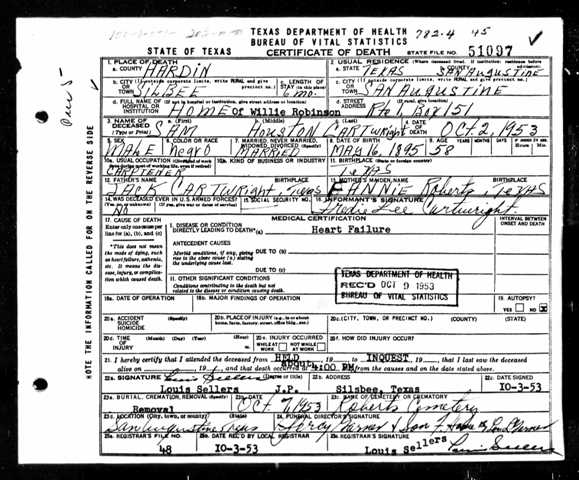 TEXAS DEPARTMENT OF HEALTH 782.4 45
BUREAU OF VITAL STATISTICS
STATE OF TEXAS CERTIFICATE OF DEATH STATE FILE NO. 51097
1. PLACE OF DEATH 2. USUAL RESIDENCE (Where deceased lived. If institution: residence before admission)
a. COUNTY HARDIN a. STATE TEXAS b. COUNTY SAN AUGUSTINE
b. CITY (If outside corporate limits, write RURAL and give precinct no.) SILBEE c. LENGTH OF STAY (in this place) 6 mo. c. CITY (If outside corporate limits, write RURAL and give precinct no.) SAN AUGUSTINE
d. FULL NAME OF (If not in hospital or institution, give street address or location) HOSPITAL OR INSTITUTION HOME of Willie Robinson d. STREET ADDRESS Rte 1, Box 151
3. NAME OF DECEASED (Type or Print) a. (First) SAM b. (Middle) HOUSTON c. (Last) CARTWright 4. DATE OF DEATH OCT. 2, 1953
5. SEX MALE 6. COLOR OR RACE NEGRO 7. MARRIED, NEVER MARRIED, WIDOWED, DIVORCED (Specify) MARRIED 8. DATE OF BIRTH 16, 1895 58
10a. USUAL OCCUPATION CARPTENER 10b. KIND OF BUSINESS OR INDUSTRY 11. BIRTHPLACE (State or foreign country) TEXAS
12. FATHER'S NAME JACK CARTWright, Texas 13. MOTHER'S MAIDEN NAME FANNIE Roberts, TEXAS
14. WAS DECEASED EVER IN U.S. ARMED FORCES? NO 15. SOCIAL SECURITY NO. 16. INFORMANT'S SIGNATURE Lee Cartwright
17. CAUSE OF DEATH MEDICAL CERTIFICATION INTERVAL BETWEEN ONSET AND DEATH
Enter only one cause per line for (a), (b), and (c) I. DISEASE OR CONDITION DIRECTLY LEADING TO DEATH* (a) Heart Failure
*This does not mean the mode of dying, such as heart failure, asthenia, etc. It means the disease, injury, or complication which caused death. ANTECEDENT CAUSES
Morbid conditions, if any, giving rise to the above cause (a) stating the underlying cause last. DUE TO (b)
DUE TO (c)
II. OTHER SIGNIFICANT CONDITIONS
Conditions contributing to the death but not related to the disease or condition causing death.
TEXAS DEPARTMENT OF HEALTH
REC'D OCT 9 1953
BUREAU OF VITAL STATISTICS
18a. DATE OF OPERATION 18b. MAJOR FINDINGS OF OPERATION 19. AUTOPSY? YES NO X
20a. ACCIDENT SUICIDE HOMICIDE (Specify) 20b. PLACE OF INJURY (e.g., in or about home, farm, factory, street, office bldg., etc.) 20c. (CITY, TOWN, OR PRECINCT NO.) (COUNTY) (STATE)
20d. TIME OF INJURY (Month) (Day) (Year) (Hour) 20e. INJURY OCCURRED WHILE AT WORK NOT WHILE AT WORK 20f. HOW DID INJURY OCCUR?
21. I hereby certify that I attended the deceased from HELD 19 , to INQUEST 19 , that I last saw the deceased
alive on 19 , and that death occurred at About 4:00 PM from the causes and on the date stated above.
22a. SIGNATURE Louis Sellers 22b. ADDRESS 22c. DATE SIGNED
Louis Sellers J.P. Silsbee, Texas 10-3-53
23a. BURIAL, CREMATION, REMOVAL (Specify) Removal 23b. DATE Oct. 7, 1953 23c. NAME OF CEMETERY OR CREMATORY Roberts Cemetery
23d. LOCATION (City, town, or county) (State) San Augustine Texas 24. FUNERAL DIRECTOR'S SIGNATURE
25a. REGISTRAR'S FILE NO. 48 25b. DATE REC'D BY LOCAL REGISTRAR 10-3-53 25c. REGISTRAR'S SIGNATURE Louis Sellers Louis Sellers
NOTE THE INFORMATION CALLED FOR ON THE REVERSE SIDE